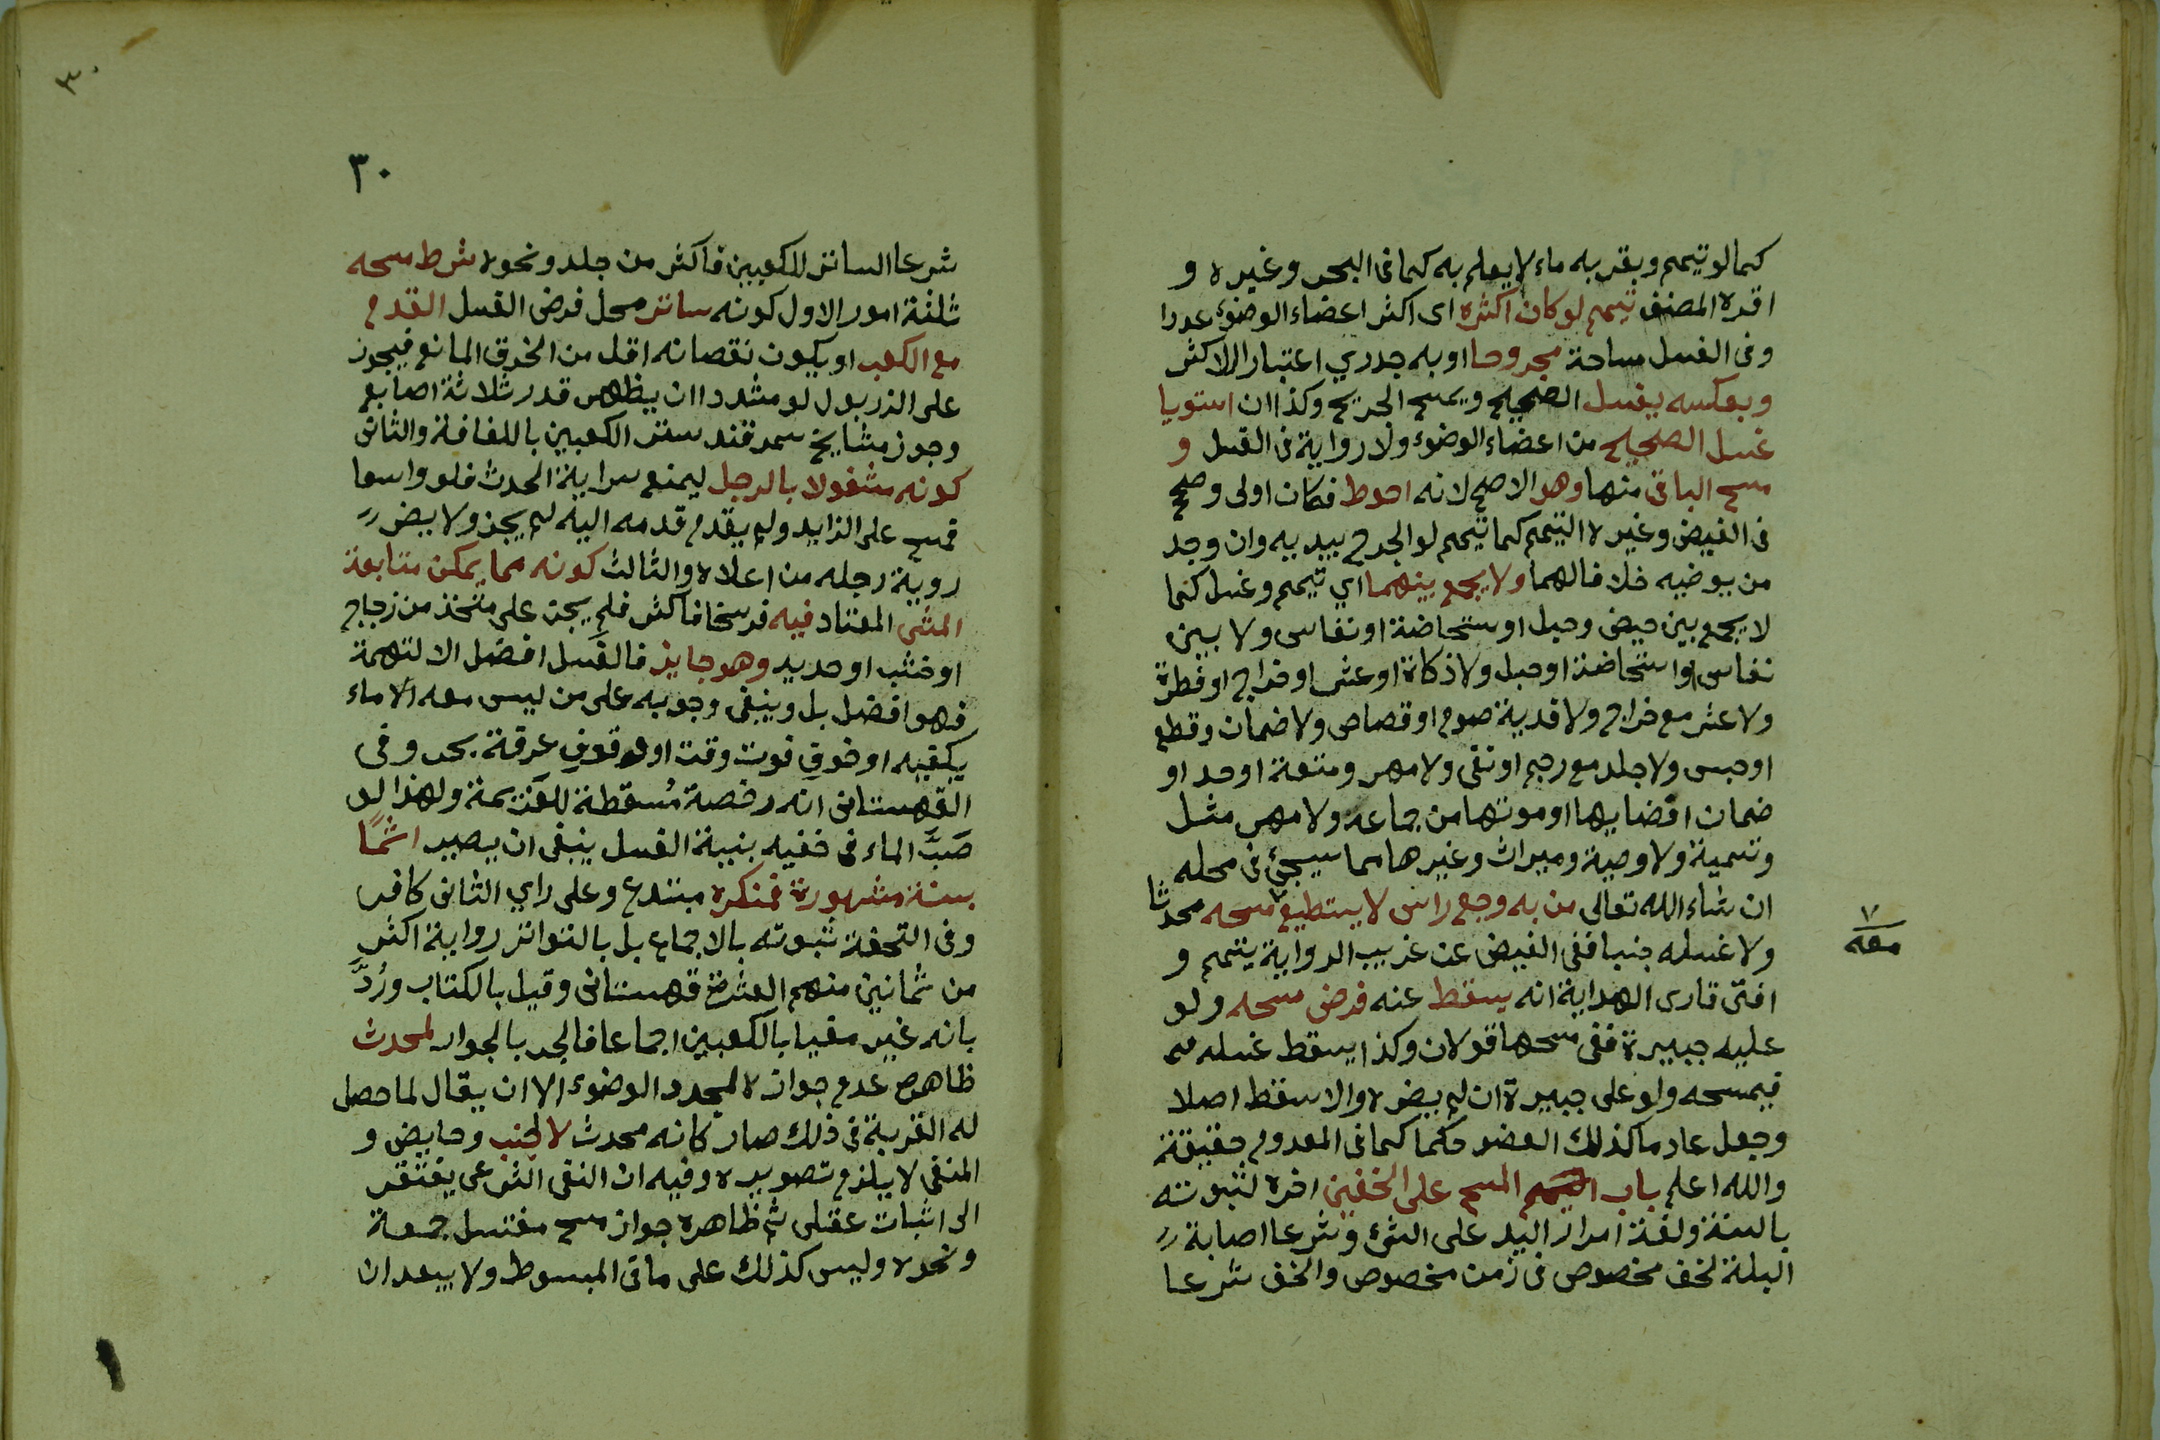 كما لو تيمم وبقربه ماء لا يعلم به كما في البحر وغيره و
اقره المصنف تيمم لو كان اكثره اى اكثر اعضاء الوضوء عددا
وفى الغسل مساحة مجروحا او به جدري اعتبارا للاكثر
وبعكسه يغسل الصحيح ويمسح الجريح وكذا ان استويا
غسل الصحيح من اعضاء الوضوء ولا رواية فى الغسل و
مسح الباقى منها وهو الاصح لانه احوط فكان اولى وصحح
فى الفيض وغيره التيمم كما تيمم لو الجرح بيديه وان وجد
من يوضيه خلافا لهما ولا يجمع بينهما اي تيمم وغسل كما
لا يجمع بين حيض وحبل او ستحاضة او نفاس ولا بين
نفاس او استحاضة او حبل ولا زكاة او عشر او خراج او فطرة
ولا عشر مع خراج ولا فدية صوم او قصاص ولا ضمان وقطع
او حبس ولا جلد مع رجم او نفى ولا مهر ومتعة او حد او
ضمان افضايها او موتها من جماعه ولا مهر مثل
وتسمية ولا وصية وميراث وغيرها مما سيجئ فى محله
ان شاء الله تعالى من به وجع راس لا يستطيع ٧ مسحه محدثا
٧ معه
ولا غسله جنبا ففى الفيض عن غريب الرواية يتيمم و
افتى قارى الهداية انه يسقط عنه فرض مسحه ولو
عليه جبيرة ففى مسحها قولان وكذا يسقط غسله
فيمسحه ولو على جبيرة ان لم يضره والا سقط اصلا
وجعل عادما لذلك العضو حكما كما فى المعدوم حقيقة
والله اعلم باب التيمم المسح على الخفين اخره لثبوته
بالسنة ولغة امرار اليد على الشئ وشرعا اصابة
البلة لخف مخصوص فى زمن مخصوص والخف شرعا
٣٠
٣٠
شرعا الساتر للكعبين فاكثر من جلد ونحوه شرط مسحه
ثلثة امور الاول كونه ساتر محل فرض الغسل القدم
مع الكعب او يكون نقصانه اقل من الخرق المانع فيجوز
على الزربول لو مشددا ان يظهر قدر ثلاثة اصابع
وجوز مشايخ سمرقند ستر الكعبين باللفافة والثانى
كونه مشغولا بالرجل ليمنع سراية الحدث فلو واسعا
فمسح على الزايد ولم يقدم قدمه اليه لم يجز ولا يضر
روية رجله من اعلاه والثالث كونه مما يمكن متابعة
المشى المعتاد فيه فرسخا فاكثر فلم يجز على متخذ من زجاج
او خشب او حديد وهو جايز فالغسل افضل الا لتهمة
فهو افضل بل وينبغى وجوبه على من ليس معه الا ماء
يكفيه او خوف فوت وقت او وقوف عرفة بحر وفى
القهستانى انه رخصة مُسقطة للعزيمة ولهذا لو
صَبَّ الماء فى خفيه بنية الغسل ينبغى ان يصير اثمًا
بسنة مشهورة فمنكره مبتدع وعلى راي الثانى كافر
وفى التحفة ثبوته بالاجماع بل بالتواتر رواية اكثر
من ثمانين منهم العشرة قهستانى وقيل بالكتاب ورُدَّ
بانه غير مغيا بالكعبين اجماعا فالجر بالجوار لمحدث
ظاهره عدم جوازه لمجدد الوضوء الا ان يقال لما حصل
له القربة فى ذلك صار كانه محدث لا لجنب وحايض و
المنفى لا يلزم تصويره وفيه ان النفى الشرعى يفتقر
الى اثبات عقلى ثم ظاهره جواز مسح مغتسل جمعة
ونحوه وليس كذلك على ما فى المبسوط ولا يبعد ان